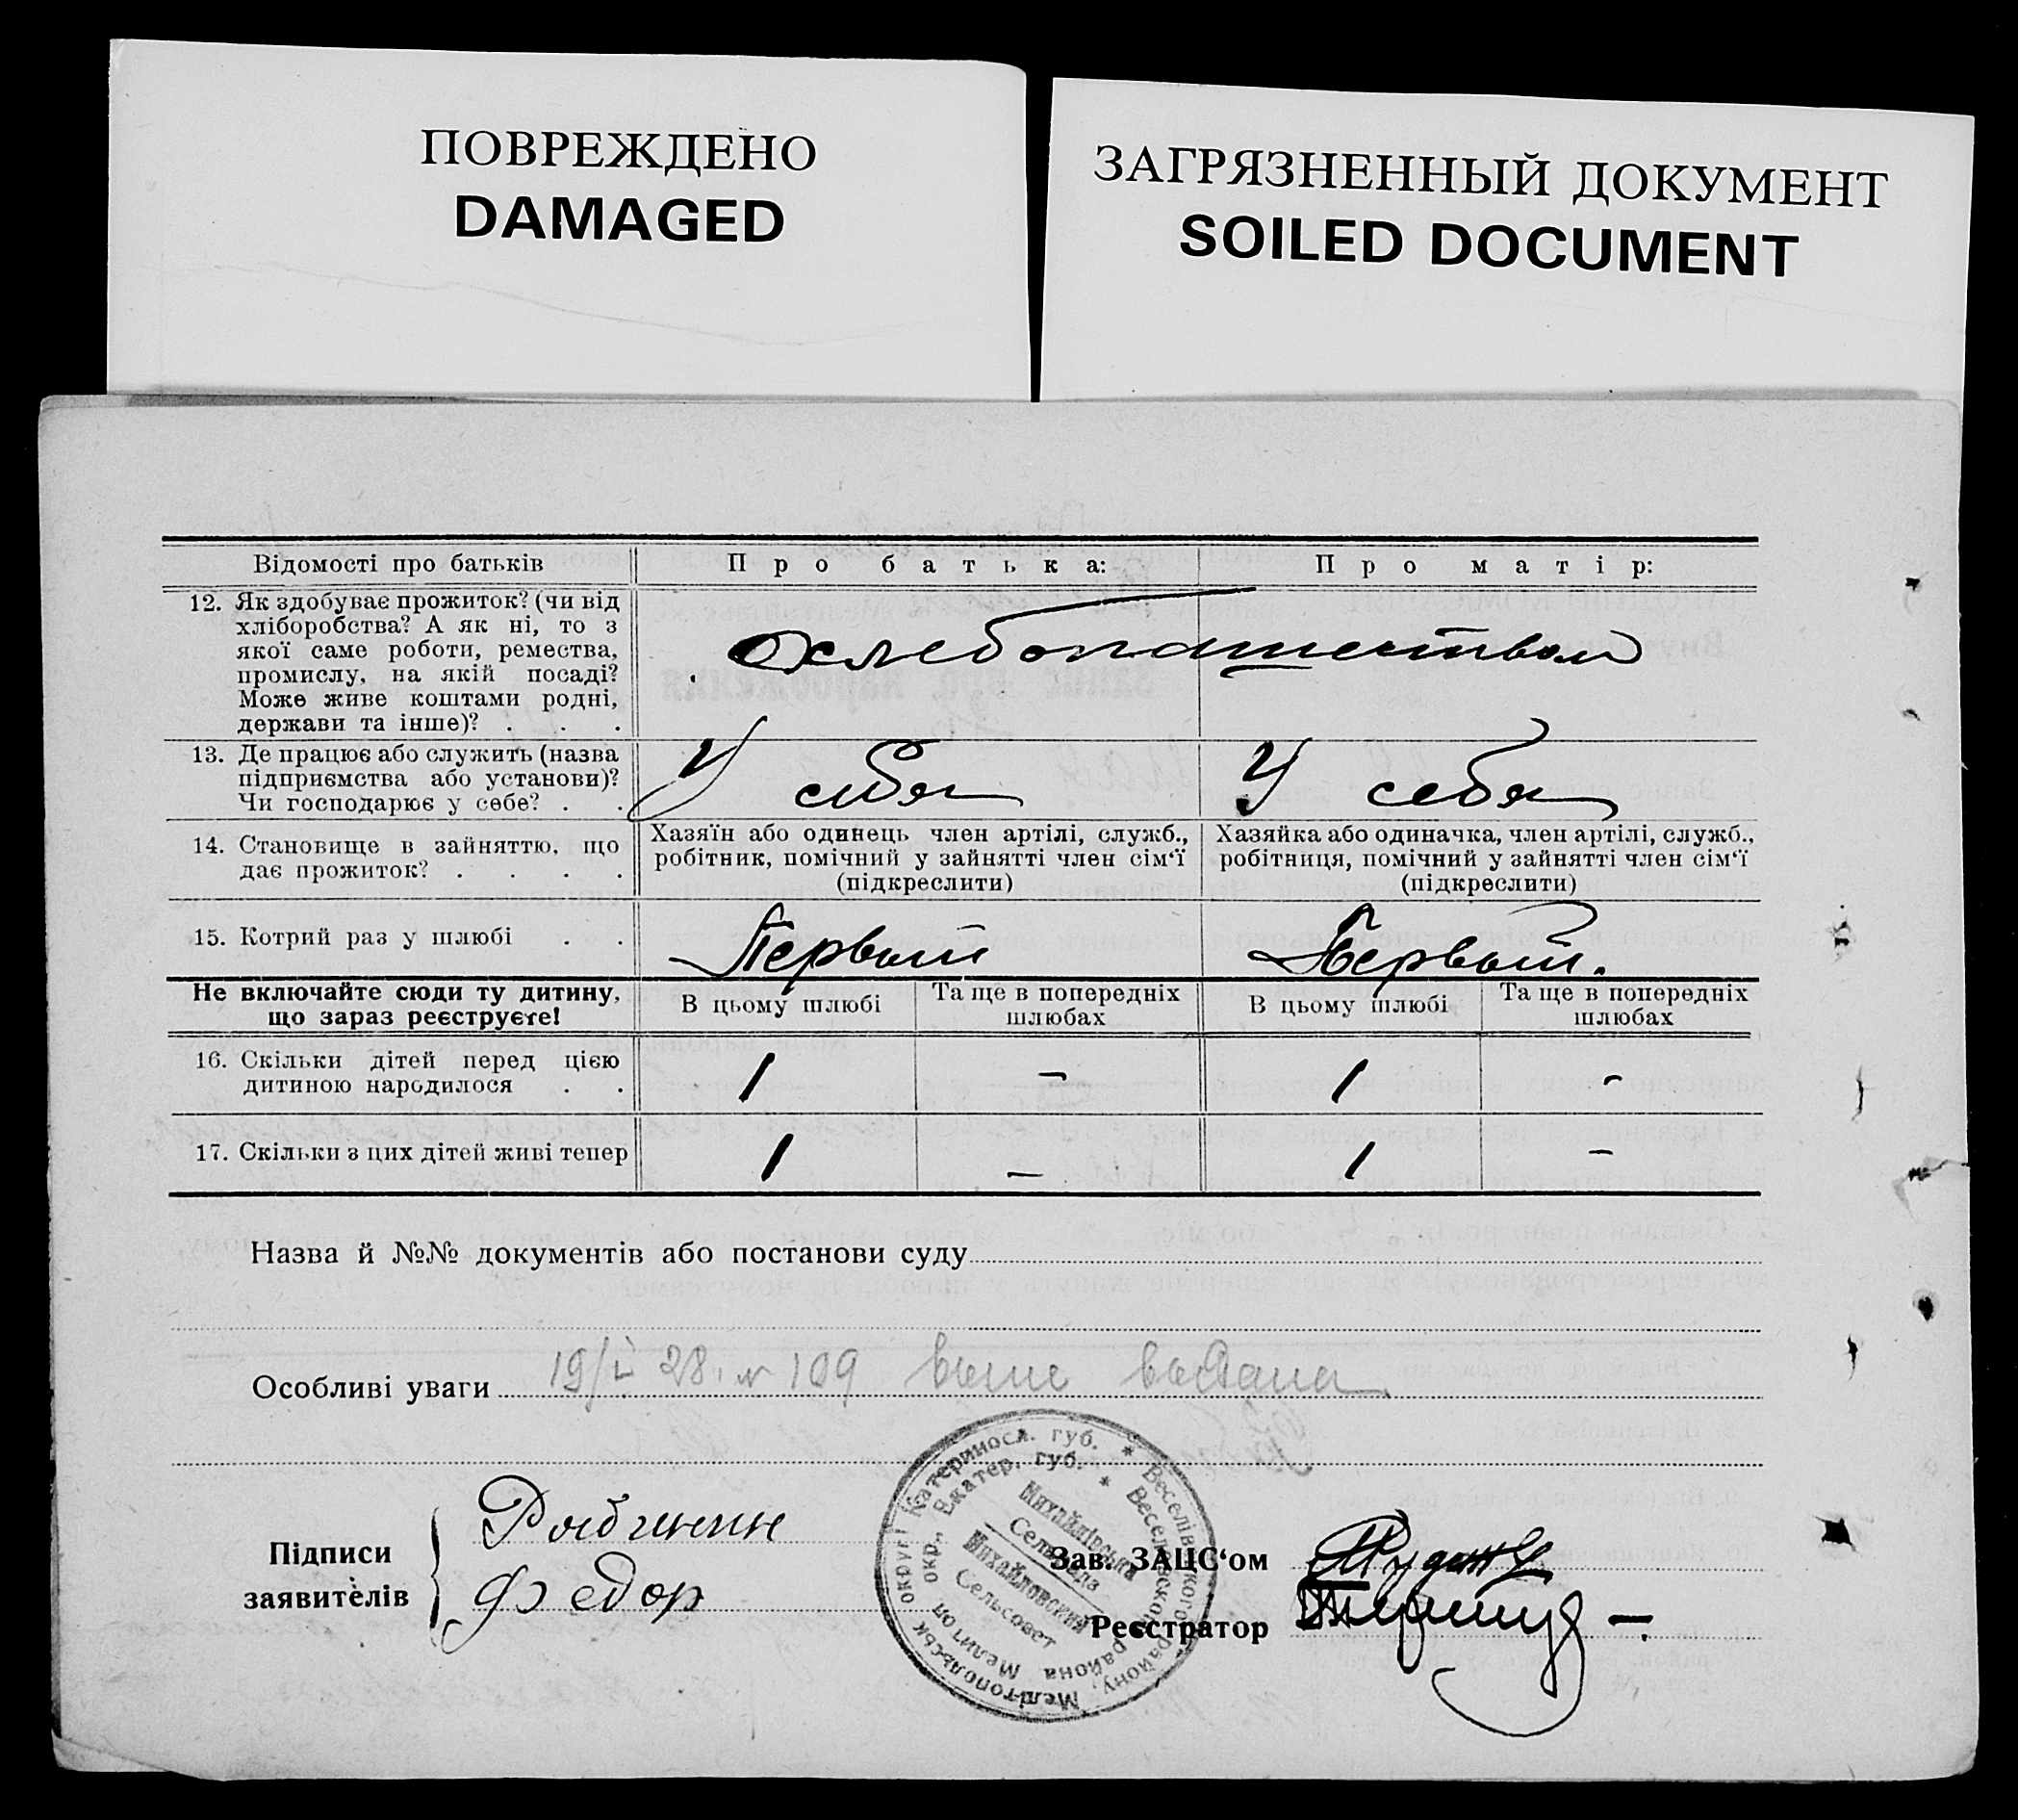 ПОВРЕЖДЕНО
DAMAGED
ЗАГРЯЗНЕННЫЙ ДОКУМЕНТ
SOILED DOCUMENT
Відомості про батьків
Про батька:
Про матір:
12. Як здобуває прожиток? (чи від
хліборобства? А як ні, то з
якої саме роботи, ремества,
промислу, на якій посаді?
Може живе коштами родні,
держави та інше)? . . .
хлебопашеством
13. Де працює або служить (назва
підприємства або установи)?
Чи господарює у себе? . .
У себя
У себя
14. Становище в зайняттю, що
дає прожиток? . . . .
Хазяїн або одинець член артілі, служб.,
робітник, помічний у зайнятті член сім‘ї
(підкреслити)
Хазяйка або одиначка, член артілі, служб.,
робітниця, помічний у зайнятті член сім‘ї
(підкреслити)
15. Котрий раз у шлюбі . .
Первый
Первый.
Не включайте сюди ту дитину,
що зараз реєструєте!
В цьому шлюбі
Та ще в попередніх
шлюбах
В цьому шлюбі
Та ще в попередніх
шлюбах
16. Скільки дітей перед цією
дитиною народилося . .
1
–
1
–
17. Скільки з цих дітей живі тепер
1
–
1
–
Назва й №№ документів або постанови суду
Особливі уваги 19/ 28. № 109 выдана
Підписи
заявителів
Рябинин
Федор
Зав. ЗАЦС‘ом
Реєстратор
округі Катеринося. губ. * Веселівского району, Мелітопольськ
окр., Екатер. губ. * Веселевского района Мелитоп
Михайлівська
Сельрада
Михайловский
Сельсовет